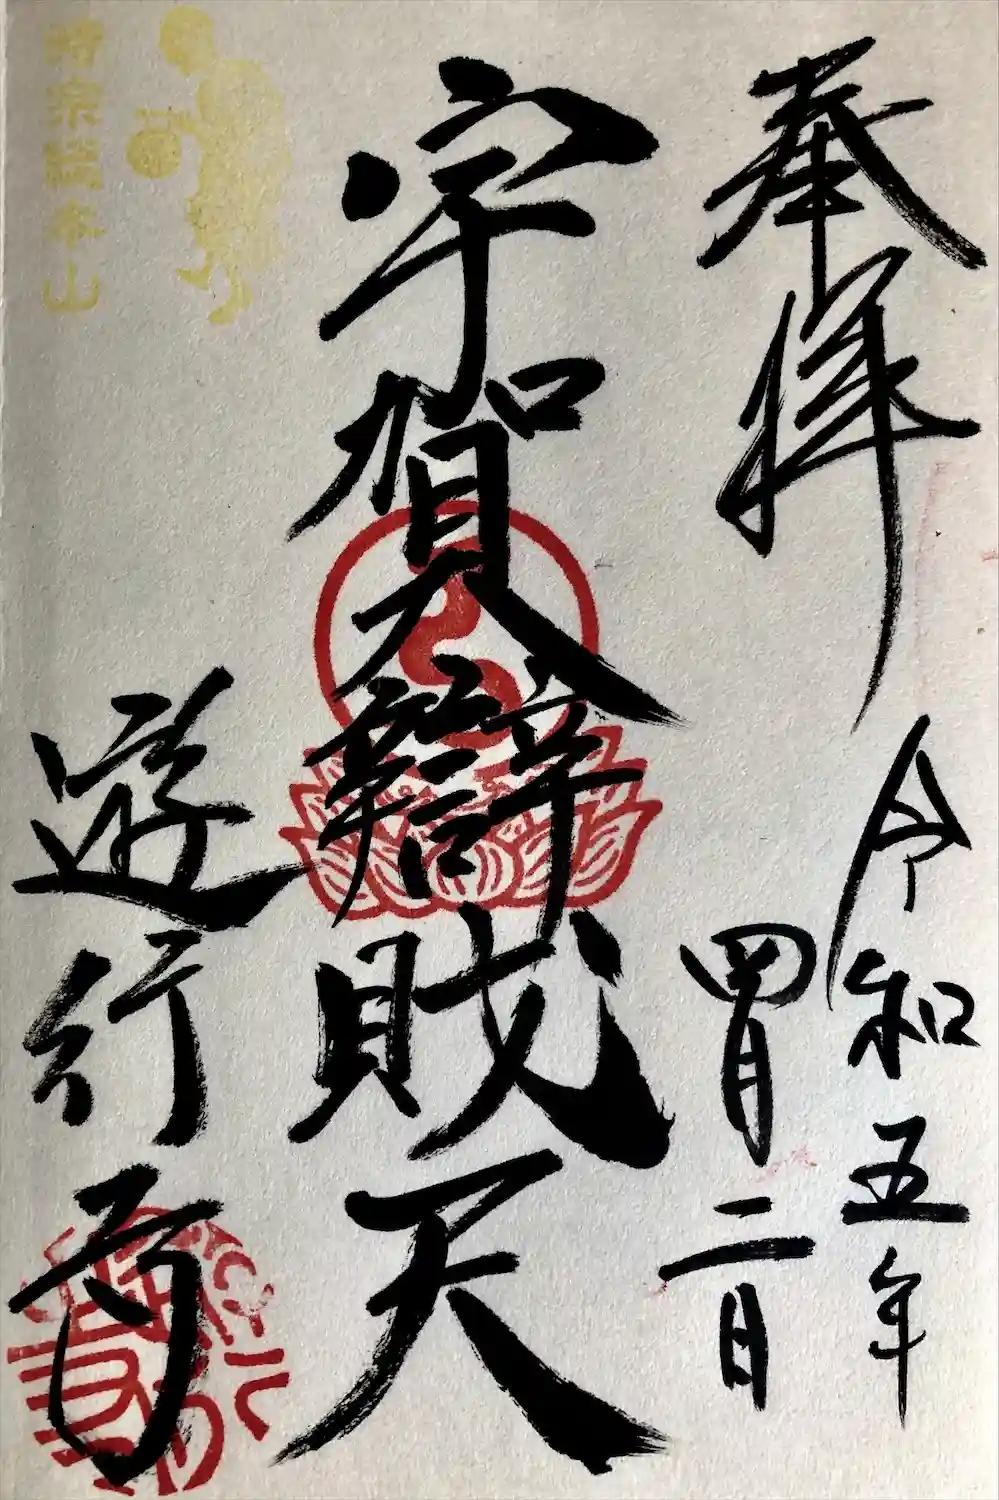 奉拝
令和五年
四月二日
宇賀弁賊天
遊行寺
時宗総本山